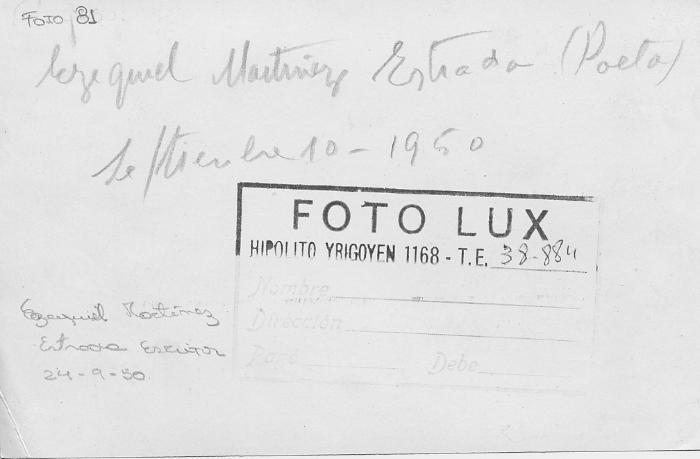 FOTO 81
Ezequiel Martínez Estrada (Poeta)
Septiembre 10 - 1950
FOTO LUX
HIPOLITO YRIGOYEN 1168 - T.E. 38-884
Nombre
Dirección
Pagó Debe
Ezequiel Martínez
Estrada Escritor
24-9-50